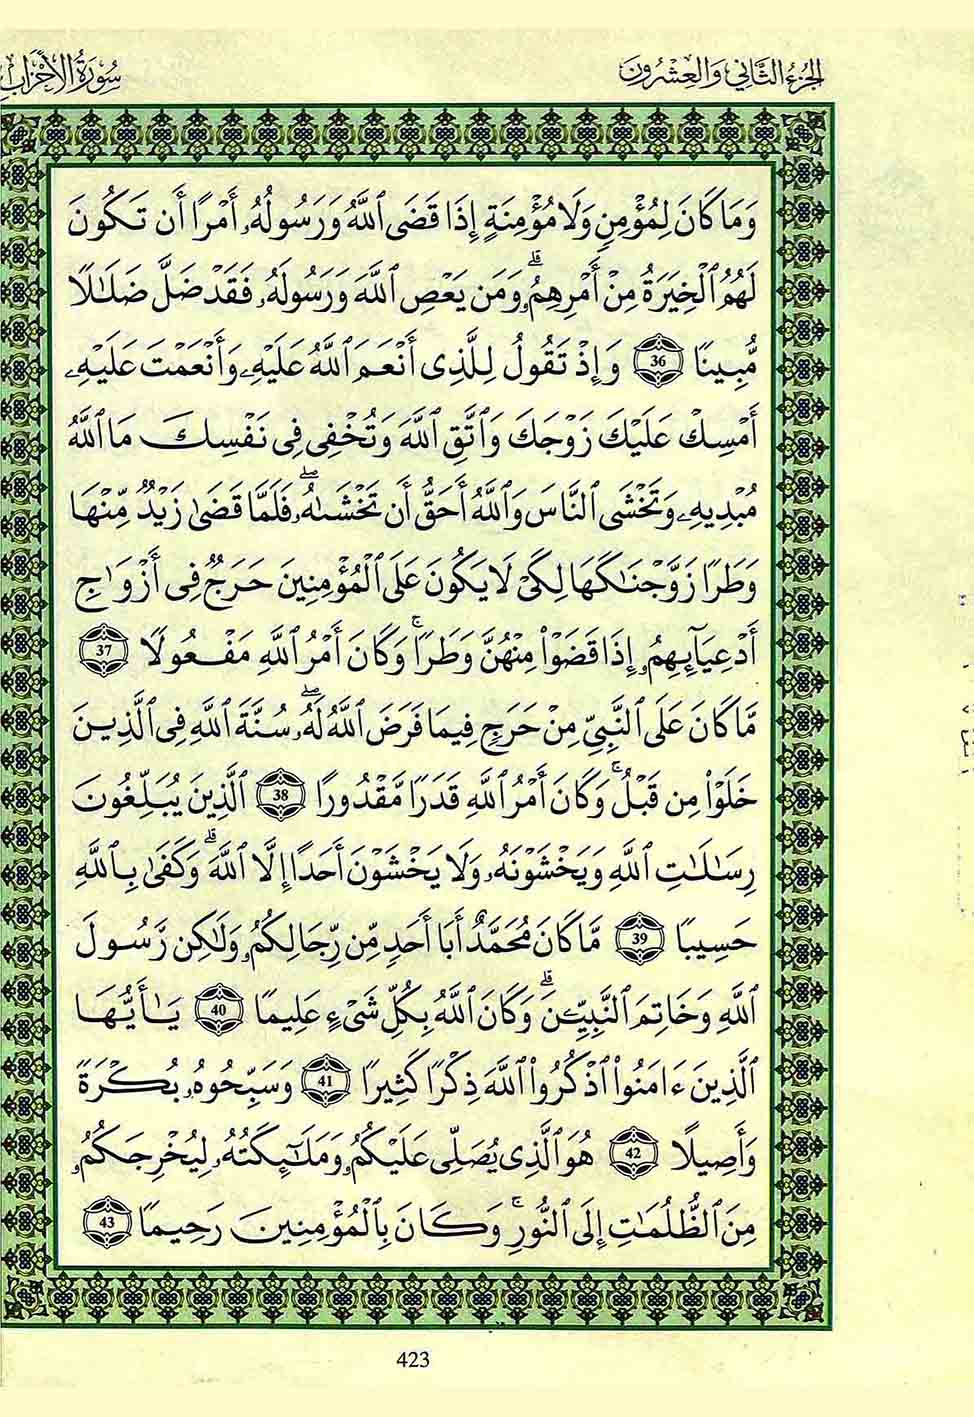 الجُزْءُ الثَّانِي وَالعِشْرُون
سُورَةُ الأَحْزَاب
وَمَا كَانَ لِمُؤْمِنٍ وَلَا مُؤْمِنَةٍ إِذَا قَضَى ٱللَّهُ وَرَسُولُهُۥ أَمْرًا أَن تَكُونَ
لَهُمُ ٱلْخِيَرَةُ مِنْ أَمْرِهِمُۥۗ وَمَن يَعْصِ ٱللَّهَ وَرَسُولَهُۥ فَقَدْ ضَلَّ ضَلَٰلًا
مُّبِينًا 36 وَإِذْ تَقُولُ لِلَّذِى أَنْعَمَ ٱللَّهُ عَلَيْهِۦ وَأَنْعَمْتَ عَلَيْهِۦ
أَمْسِكْ عَلَيْكَ زَوْجَكَ وَٱتَّقِ ٱللَّهَ وَتُخْفِى فِى نَفْسِكَ مَا ٱللَّهُ
مُبْدِيهِۦ وَتَخْشَى ٱلنَّاسَ وَٱللَّهُ أَحَقُّ أَن تَخْشَىٰهُۥۖ فَلَمَّا قَضَىٰ زَيْدٌ مِّنْهَا
وَطَرًا زَوَّجْنَٰكَهَا لِكَىْ لَا يَكُونَ عَلَى ٱلْمُؤْمِنِينَ حَرَجٌ فِى أَزْوَٰجِ
أَدْعِيَآئِهِمُۥ إِذَا قَضَوْا۟ مِنْهُنَّ وَطَرًاۚ وَكَانَ أَمْرُ ٱللَّهِ مَفْعُولًا 37
مَّا كَانَ عَلَى ٱلنَّبِىِّ مِنْ حَرَجٍ فِيمَا فَرَضَ ٱللَّهُ لَهُۥۖ سُنَّةَ ٱللَّهِ فِى ٱلَّذِينَ
خَلَوْا۟ مِن قَبْلُۚ وَكَانَ أَمْرُ ٱللَّهِ قَدَرًا مَّقْدُورًا 38 ٱلَّذِينَ يُبَلِّغُونَ
رِسَٰلَٰتِ ٱللَّهِ وَيَخْشَوْنَهُۥ وَلَا يَخْشَوْنَ أَحَدًا إِلَّا ٱللَّهَۗ وَكَفَىٰ بِٱللَّهِ
حَسِيبًا 39 مَّا كَانَ مُحَمَّدٌ أَبَا أَحَدٍ مِّن رِّجَالِكُمُۥ وَلَٰكِن رَّسُولَ
ٱللَّهِ وَخَاتِمَ ٱلنَّبِيِّـۧنَۗ وَكَانَ ٱللَّهُ بِكُلِّ شَىْءٍ عَلِيمًا 40 يَٰأَيُّهَا
ٱلَّذِينَ ءَامَنُوا۟ ٱذْكُرُوا۟ ٱللَّهَ ذِكْرًا كَثِيرًا 41 وَسَبِّحُوهُۥ بُكْرَةً
وَأَصِيلًا 42 هُوَ ٱلَّذِى يُصَلِّى عَلَيْكُمُۥ وَمَلَٰٓئِكَتُهُۥ لِيُخْرِجَكُمُۥ
مِنَ ٱلظُّلُمَٰتِ إِلَى ٱلنُّورِۚ وَكَانَ بِٱلْمُؤْمِنِينَ رَحِيمًا 43
423